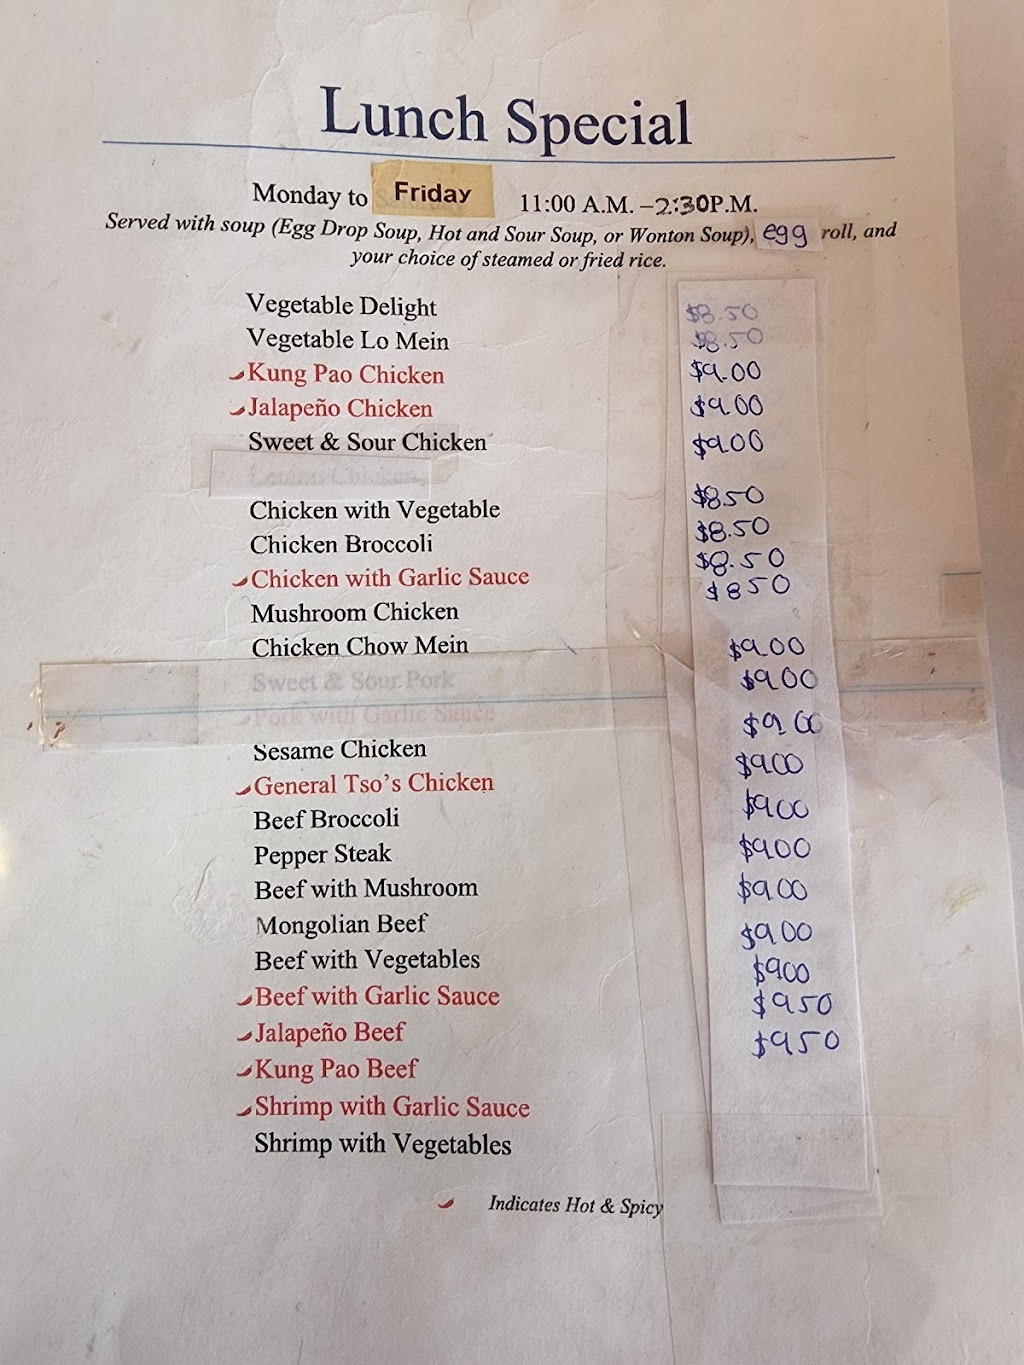 Lunch Special
Monday to Friday 11:00 A.M. –2:30P.M.
Served with soup (Egg Drop Soup, Hot and Sour Soup, or Wonton Soup), egg roll, and
your choice of steamed or fried rice.
Vegetable Delight $8.50
Vegetable Lo Mein $8.50
Kung Pao Chicken $9.00
Jalapeño Chicken $9.00
Sweet & Sour Chicken $9.00
Lemon Chicken
Chicken with Vegetable $8.50
Chicken Broccoli $8.50
Chicken with Garlic Sauce $8.50
Mushroom Chicken $850
Chicken Chow Mein $9.00
Sweet & Sour Pork $9.00
Pork with Garlic Sauce $9.00
Sesame Chicken $900
General Tso's Chicken $900
Beef Broccoli $9.00
Pepper Steak $9.00
Beef with Mushroom $9.00
Mongolian Beef $900
Beef with Vegetables $950
Beef with Garlic Sauce $950
Jalapeño Beef
Kung Pao Beef
Shrimp with Garlic Sauce
Shrimp with Vegetables
Indicates Hot & Spicy